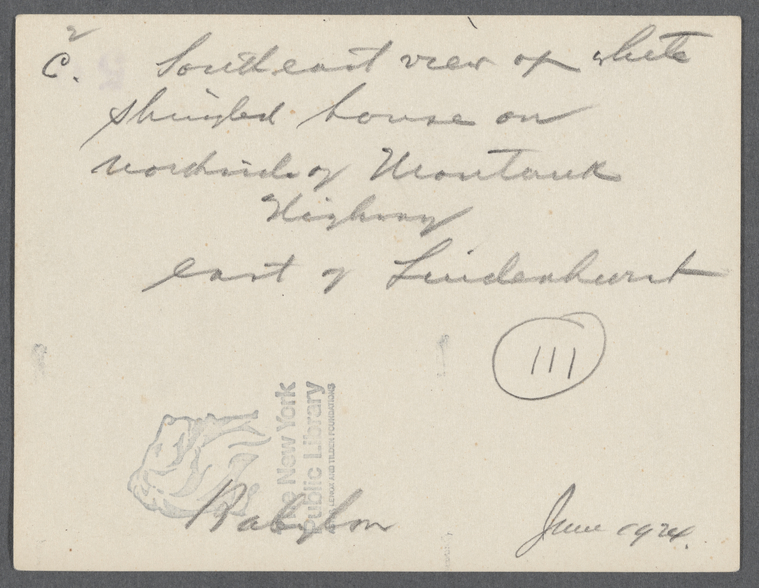 C. Southeast view of white
shingled house on
northside of Montauk
Highway
east of Lindenhurst
111
The New York
Public Library
ASTOR LENOX AND TILDEN FOUNDATIONS
Babylon
June 1924.